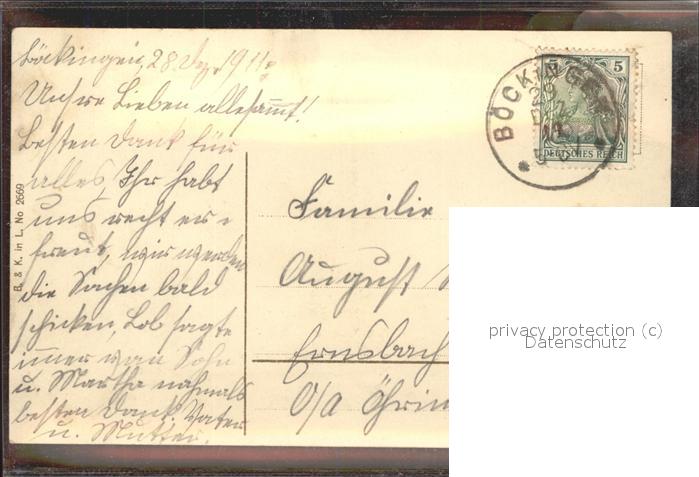 Böckingen, 28. Dez. 1911.
Unsre Lieben allesammt!
Besten Dank für
alles, Ihr habt
uns recht er-
freut, wir werden
die Sachen bald
schicken, Lob sagte
immer von Sohn
u. Martha nahmals
besten Dank. Vater
u. Mutter.
B. & K. in L. No 2669
BÖCKINGEN
5 5
DEUTSCHES REICH
Familie
August
Ernsbach
O/a Öhrin
privacy protection (c)
Datenschutz